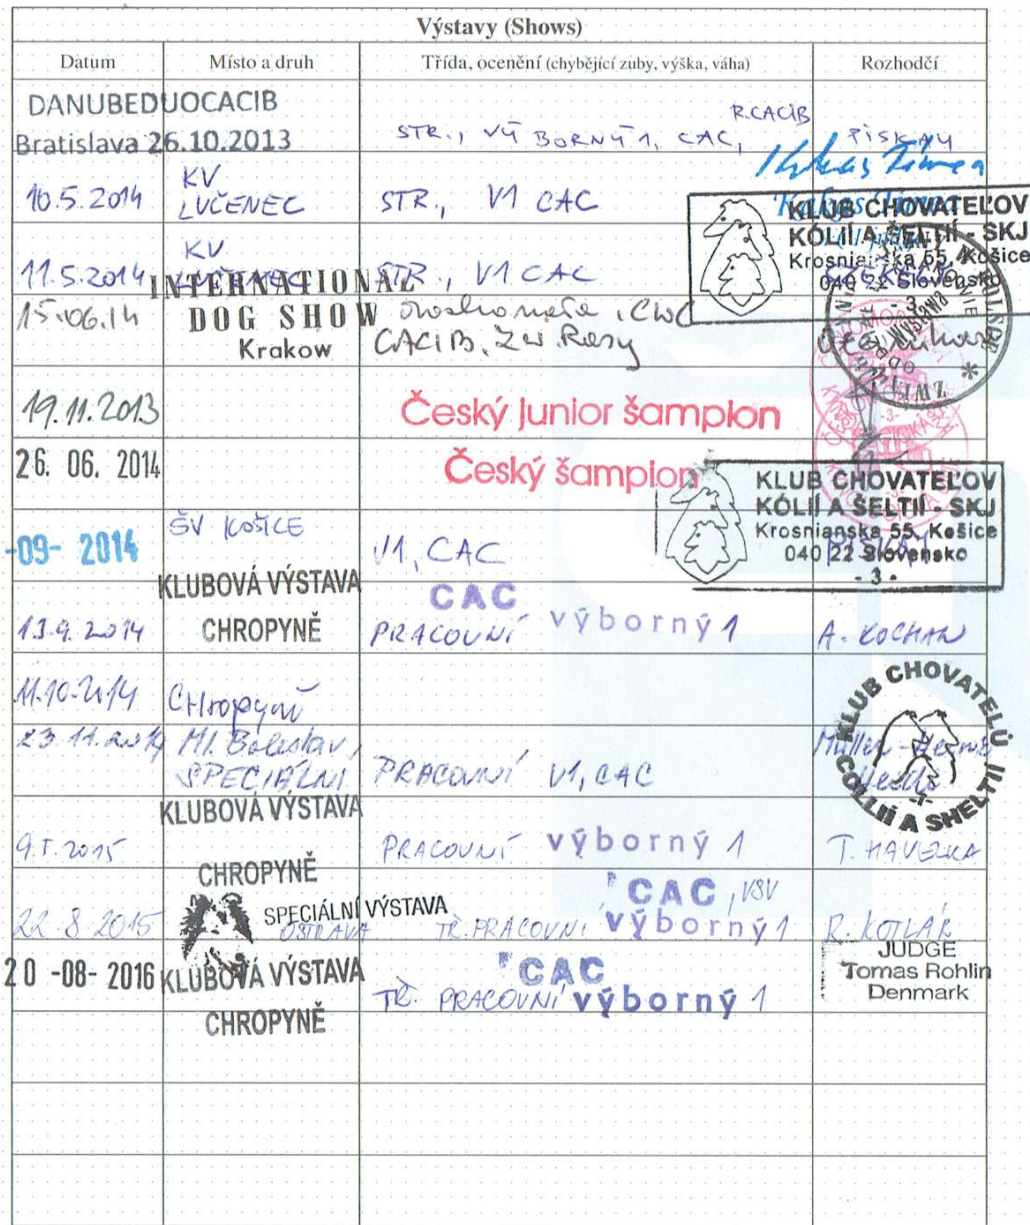 Výstavy (Shows)
Datum Místo a druh Třída, ocenění (chybějící zuby, výška, váha) Rozhodčí
DANUBEDUOCACIB
Bratislava 26.10.2013 STR., VÝBORNÝ 1, CAC, R.CACIB
10.5.2014 KV LUČENEC STR., V1 CAC
KLUB CHOVATEĽOV
KÓLIÍ A ŠELTIÍ - SKJ
Krosnianska 55, Košice
040 22 Slovensko
- 3 -
11.5.2014 KV STR., V1 CAC
15.06.14 INTERNATIONAL
DOG SHOW
Krakow
CACIB, Zw. Rasy
19.11.2013 Český junior šampion
26. 06. 2014 Český šampion
KLUB CHOVATEĽOV
KÓLIÍ A ŠELTIÍ - SKJ
Krosnianska 55, Košice
040 22 Slovensko
- 3 -
-09- 2014 ŠV KOŠICE V1, CAC
KLUBOVÁ VÝSTAVA
CHROPYNĚ
13.9.2014 CAC
PRACOVNÍ výborný 1 A. KOCHAN
11.10.2014 Chropyně
KLUB CHOVATELŮ
COLLIÍ A SHELTIÍ
23.11.2014 Ml. Boleslav,
SPECIÁLNÍ PRACOVNÍ V1, CAC
KLUBOVÁ VÝSTAVA
CHROPYNĚ
9.5.2015 PRACOVNÍ výborný 1 T. HAVELKA
CAC, VSV
22.8.2015 SPECIÁLNÍ VÝSTAVA
OSTRAVA TŘ. PRACOVNÍ výborný 1 R. KOTLÁR
20 -08- 2016 KLUBOVÁ VÝSTAVA
CHROPYNĚ
CAC
TŘ. PRACOVNÍ výborný 1
JUDGE
Tomas Rohlin
Denmark